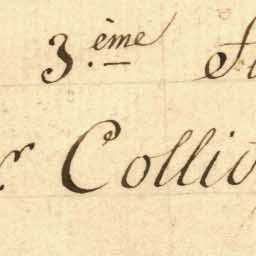 3.ème
r Colli